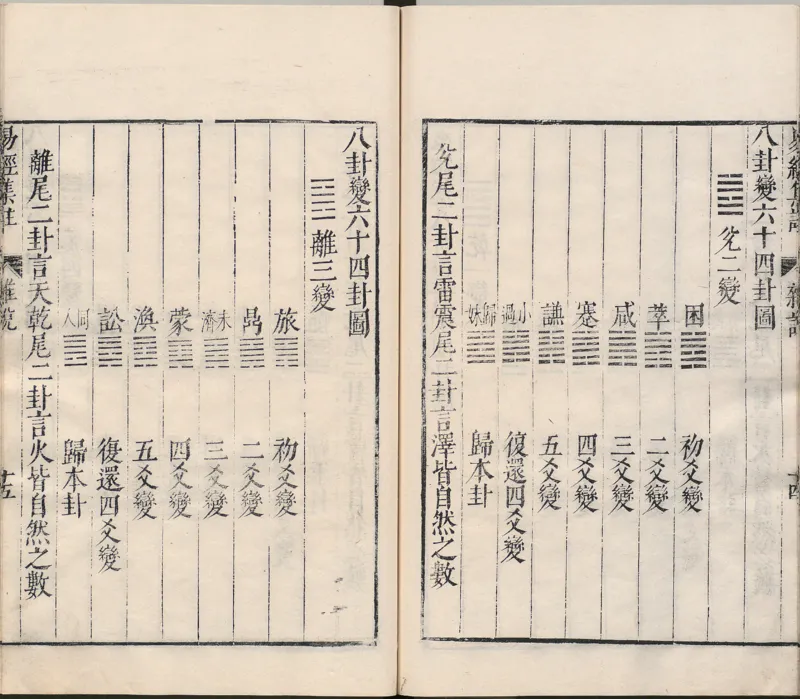 易經集註 雜說 十四
八卦變六十四卦圖
兌二變
困 初爻變
萃 二爻變
咸 三爻變
蹇 四爻變
謙 五爻變
小過 復還四爻變
歸妹 歸本卦
兌尾二卦言雷震尾二卦言澤皆自然之數
八卦變六十四卦圖
離三變
旅 初爻變
鼎 二爻變
未濟 三爻變
蒙 四爻變
渙 五爻變
訟 復還四爻變
同人 歸本卦
離尾二卦言天乾尾二卦言火皆自然之數
易經集註 雜說 十五